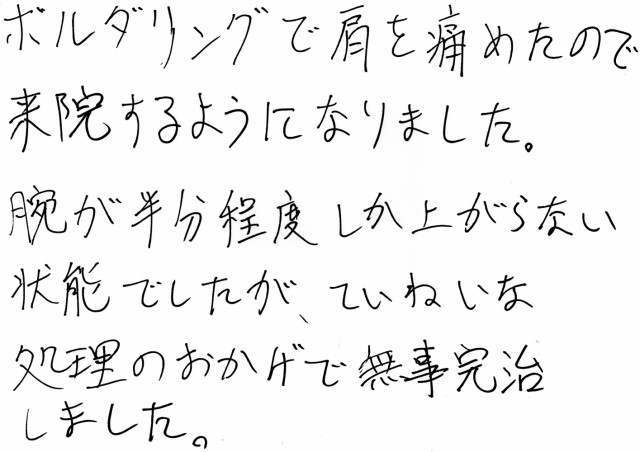 ボルダリングで肩を痛めたので
来院するようになりました。
腕が半分程度しか上がらない
状態でしたが、ていねいな
処理のおかげで無事完治
しました。